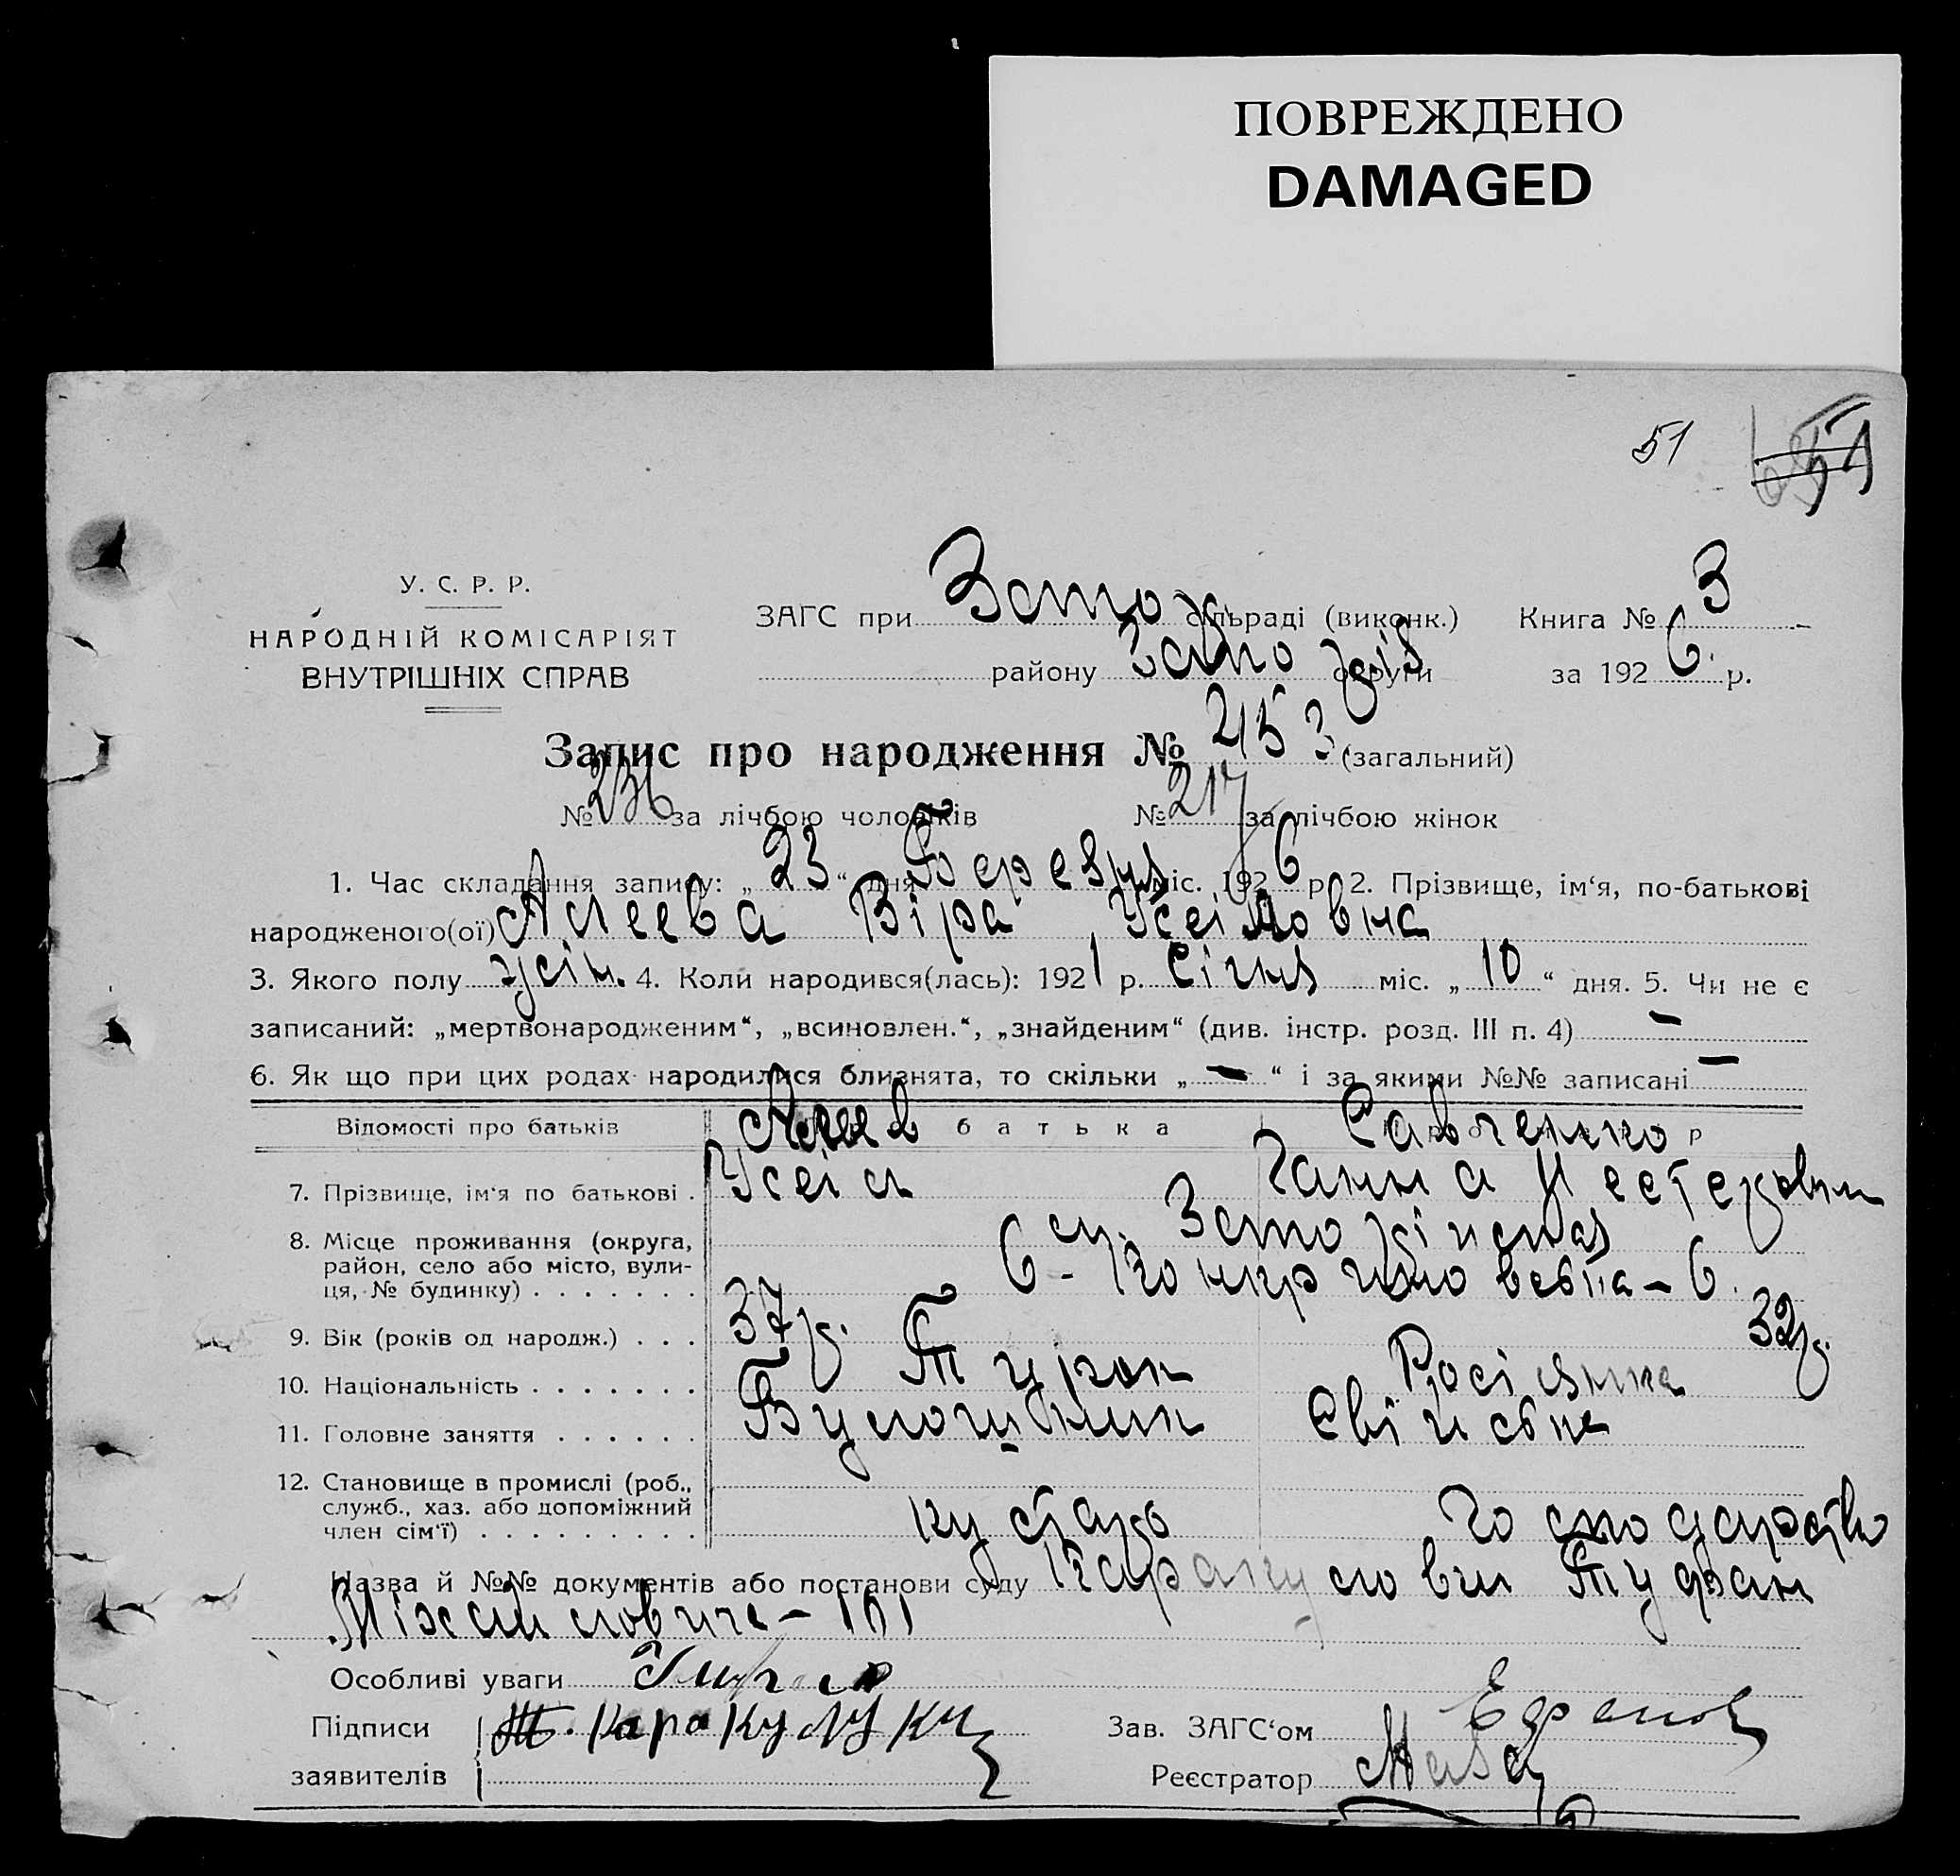 ПОВРЕЖДЕНО
DAMAGED
51
У. С. Р. Р.
НАРОДНІЙ КОМІСАРІЯТ
ВНУТРІШНІХ СПРАВ
ЗАГС при сільраді (виконк.) Книга № 3
району округи за 1926 р.
Запис про народження № 453 (загальний)
№ 236 за лічбою чоловіків № 217 за лічбою жінок
1. Час складання запису: „23“ дня Березня міс. 1926 р. 2. Прізвище, ім‘я, по-батькові
народженого(ої) Алеева Віра Усеіновна
3. Якого полу жін. 4. Коли народився(лась): 1921 р. Січня міс. „10“ дня. 5. Чи не є
записаний: „мертвонародженим“, „всиновлен.“, „знайденим“ (див. інстр. розд. III п. 4) –
6. Як що при цих родах народилися близнята, то скільки „–“ і за якими №№ записані –
Відомості про батьків батька
Алеев Савченко
7. Прізвище, ім‘я по батькові . Усеін Ганна Нестеровн
8. Місце проживання (округа,
район, село або місто, вули-
ця, № будинку) . . . . . . .
9. Вік (років од народж.) . . . 37 р. 32 р.
10. Національність . . . . . . . Турок Росіянка
11. Головне заняття . . . . . . Булошник
12. Становище в промислі (роб.,
служб., хаз. або допоміжний
член сім‘ї) . . . . . . . . . кустарь господарство
Назва й №№ документів або постанови суду Туфан
Міхайловича – 101
Особливі уваги
Підписи
заявителів
Зав. ЗАГС‘ом
Реєстратор